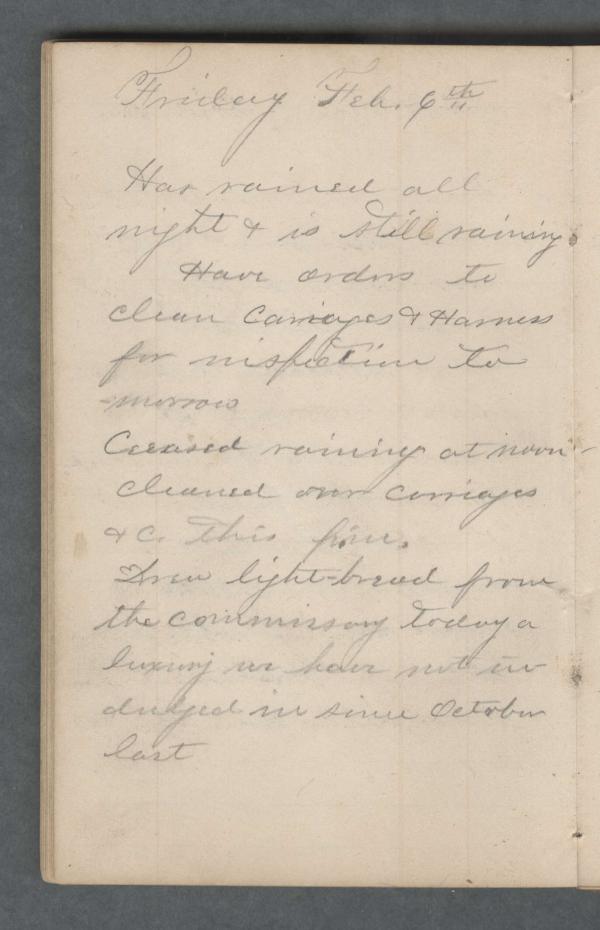 Friday Feb. 6th
Has rained all
night & is still raining.
Have orders to
clean carriages & Harness
for inspection to
-morrow
Ceeased raining at noon-
cleaned over carriages
&c. this
Drew light-bread from
the commissary today a
luxury we have not in-
dulged in since October
last